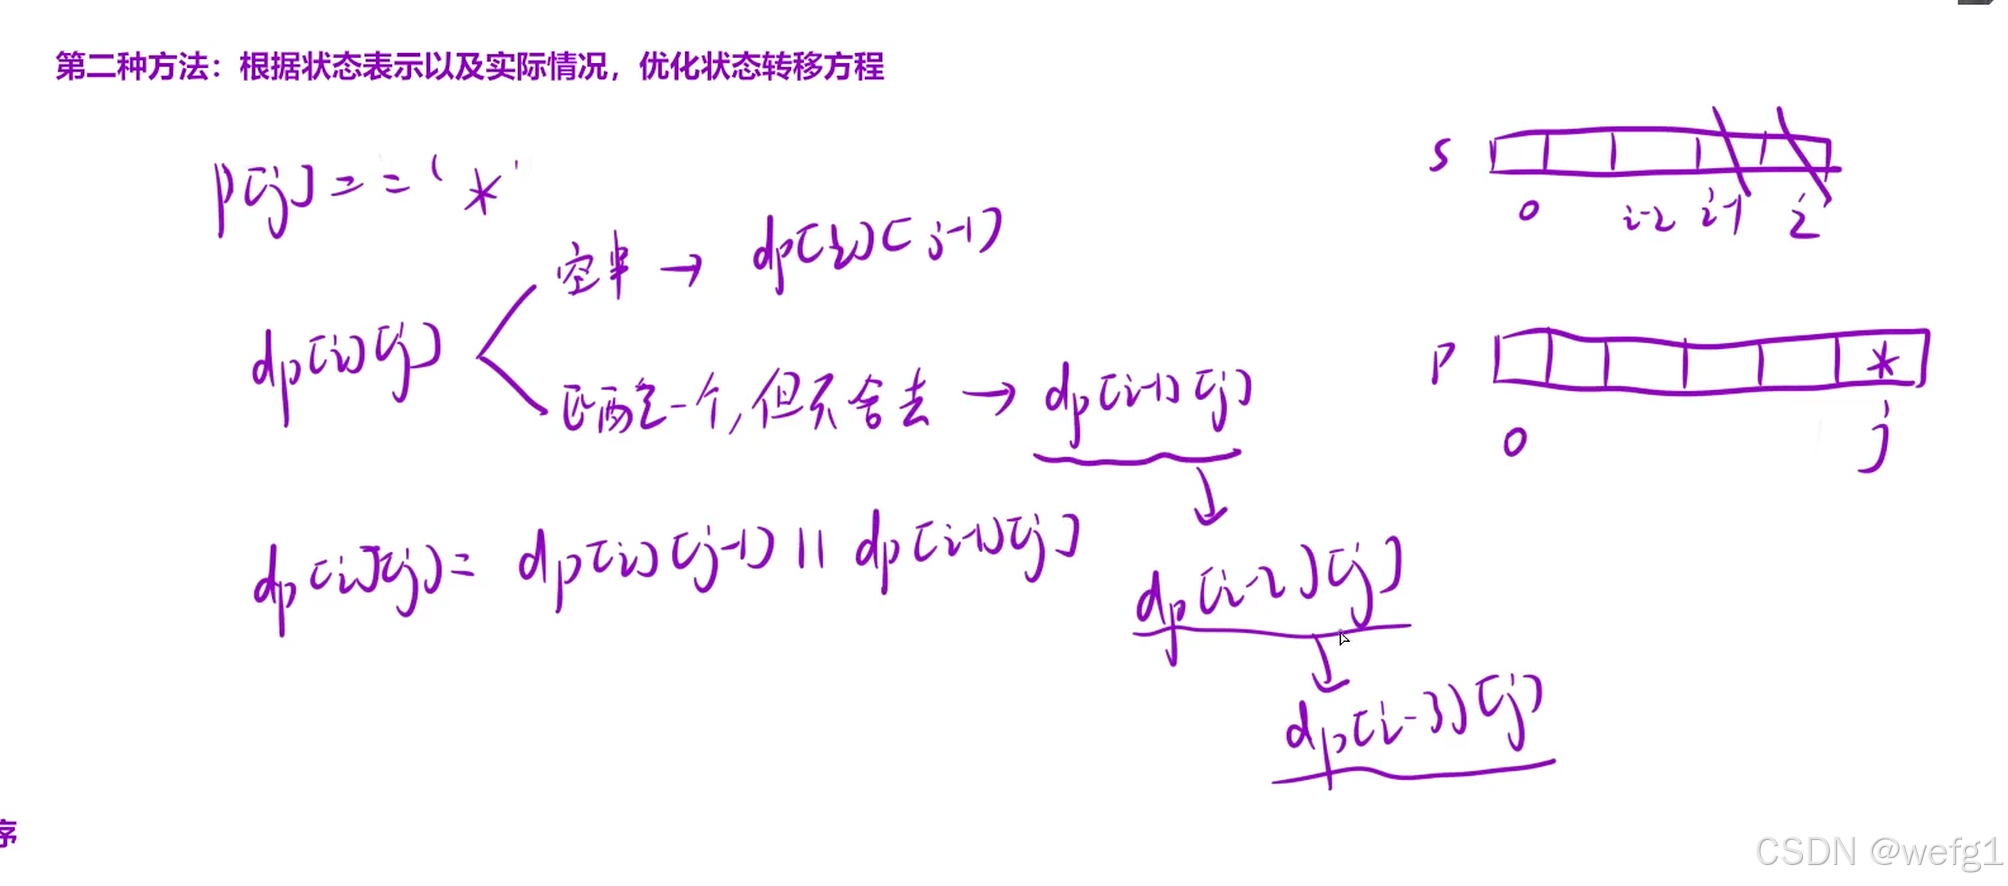 第二种方法：根据状态表示以及实际情况，优化状态转移方程
p[j] == '*'
空串 → dp[i][j-1]
dp[i][j]
匹配一个，但不舍去 → dp[i-1][j]
dp[i][j] = dp[i][j-1] || dp[i-1][j]
dp[i-2][j]
dp[i-3][j]
s
0 i-2 i-1 i
p *
0 j
序
CSDN @wefg1